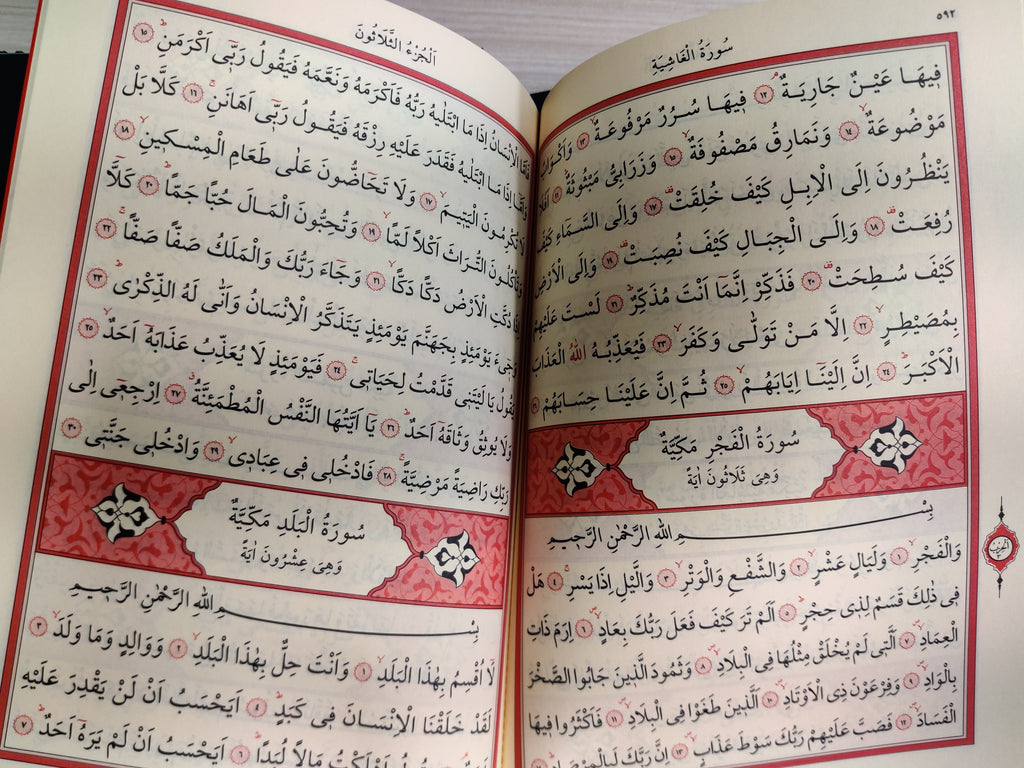 ٥٩٢
سُورَةُ الْغَاشِيَةِ
فِيهَا عَيْنٌ جَارِيَةٌ ﴿١٢﴾ فِيهَا سُرُرٌ مَرْفُوعَةٌ ﴿١٣﴾ وَاَكْوَابٌ
مَوْضُوعَةٌ ﴿١٤﴾ وَنَمَارِقُ مَصْفُوفَةٌ ﴿١٥﴾ وَزَرَابِيُّ مَبْثُوثَةٌ ﴿١٦﴾ اَفَلَا
يَنْظُرُونَ اِلَى الْاِبِلِ كَيْفَ خُلِقَتْ ﴿١٧﴾ وَاِلَى السَّمَاءِ كَيْفَ
رُفِعَتْ ﴿١٨﴾ وَاِلَى الْجِبَالِ كَيْفَ نُصِبَتْ ﴿١٩﴾ وَاِلَى الْاَرْضِ
كَيْفَ سُطِحَتْ ﴿٢٠﴾ فَذَكِّرْ اِنَّمَا اَنْتَ مُذَكِّرٌ ﴿٢١﴾ لَسْتَ عَلَيْهِمْ
بِمُصَيْطِرٍ ﴿٢٢﴾ اِلَّا مَنْ تَوَلّٰى وَكَفَرَ ﴿٢٣﴾ فَيُعَذِّبُهُ اللّٰهُ الْعَذَابَ
الْاَكْبَرَ ﴿٢٤﴾ اِنَّ اِلَيْنَا اِيَابَهُمْ ﴿٢٥﴾ ثُمَّ اِنَّ عَلَيْنَا حِسَابَهُمْ ﴿٢٦﴾
سُورَةُ الْفَجْرِ مَكِّيَّةٌ
وَهِيَ ثَلَاثُونَ اٰيَةً
بِسْمِ اللّٰهِ الرَّحْمٰنِ الرَّحِيمِ
وَالْفَجْرِ ﴿١﴾ وَلَيَالٍ عَشْرٍ ﴿٢﴾ وَالشَّفْعِ وَالْوَتْرِ ﴿٣﴾ وَالَّيْلِ اِذَا يَسْرِ ﴿٤﴾ هَلْ
فِي ذٰلِكَ قَسَمٌ لِذِي حِجْرٍ ﴿٥﴾ اَلَمْ تَرَ كَيْفَ فَعَلَ رَبُّكَ بِعَادٍ ﴿٦﴾ اِرَمَ ذَاتِ
الْعِمَادِ ﴿٧﴾ اَلَّتِي لَمْ يُخْلَقْ مِثْلُهَا فِي الْبِلَادِ ﴿٨﴾ وَثَمُودَ الَّذِينَ جَابُوا الصَّخْرَ
بِالْوَادِ ﴿٩﴾ وَفِرْعَوْنَ ذِي الْاَوْتَادِ ﴿١٠﴾ اَلَّذِينَ طَغَوْا فِي الْبِلَادِ ﴿١١﴾ فَاَكْثَرُوا فِيهَا
الْفَسَادَ ﴿١٢﴾ فَصَبَّ عَلَيْهِمْ رَبُّكَ سَوْطَ عَذَابٍ ﴿١٣﴾ اِنَّ رَبَّكَ لَبِالْمِرْصَادِ
اَلْجُزْءُ الثَّلَاثُونَ
فَاَمَّا الْاِنْسَانُ اِذَا مَا ابْتَلٰيهُ رَبُّهُ فَاَكْرَمَهُ وَنَعَّمَهُ فَيَقُولُ رَبِّي اَكْرَمَنِ ﴿١٥﴾
وَاَمَّا اِذَا مَا ابْتَلٰيهُ فَقَدَرَ عَلَيْهِ رِزْقَهُ فَيَقُولُ رَبِّي اَهَانَنِ ﴿١٦﴾ كَلَّا بَلْ
لَا تُكْرِمُونَ الْيَتِيمَ ﴿١٧﴾ وَلَا تَحَاضُّونَ عَلٰى طَعَامِ الْمِسْكِينِ ﴿١٨﴾
وَتَأْكُلُونَ التُّرَاثَ اَكْلًا لَمًّا ﴿١٩﴾ وَتُحِبُّونَ الْمَالَ حُبًّا جَمًّا ﴿٢٠﴾ كَلَّا
اِذَا دُكَّتِ الْاَرْضُ دَكًّا دَكًّا ﴿٢١﴾ وَجَاءَ رَبُّكَ وَالْمَلَكُ صَفًّا صَفًّا ﴿٢٢﴾
وَجِيءَ يَوْمَئِذٍ بِجَهَنَّمَ يَوْمَئِذٍ يَتَذَكَّرُ الْاِنْسَانُ وَاَنّٰى لَهُ الذِّكْرٰى ﴿٢٣﴾
يَقُولُ يَا لَيْتَنِي قَدَّمْتُ لِحَيَاتِي ﴿٢٤﴾ فَيَوْمَئِذٍ لَا يُعَذِّبُ عَذَابَهُ اَحَدٌ ﴿٢٥﴾
وَلَا يُوثِقُ وَثَاقَهُ اَحَدٌ ﴿٢٦﴾ يَا اَيَّتُهَا النَّفْسُ الْمُطْمَئِنَّةُ ﴿٢٧﴾ اِرْجِعِي اِلٰى
رَبِّكِ رَاضِيَةً مَرْضِيَّةً ﴿٢٨﴾ فَادْخُلِي فِي عِبَادِي ﴿٢٩﴾ وَادْخُلِي جَنَّتِي ﴿٣٠﴾
سُورَةُ الْبَلَدِ مَكِّيَّةٌ
وَهِيَ عِشْرُونَ اٰيَةً
بِسْمِ اللّٰهِ الرَّحْمٰنِ الرَّحِيمِ
لَا اُقْسِمُ بِهٰذَا الْبَلَدِ ﴿١﴾ وَاَنْتَ حِلٌّ بِهٰذَا الْبَلَدِ ﴿٢﴾ وَوَالِدٍ وَمَا وَلَدَ ﴿٣﴾
لَقَدْ خَلَقْنَا الْاِنْسَانَ فِي كَبَدٍ ﴿٤﴾ اَيَحْسَبُ اَنْ لَنْ يَقْدِرَ عَلَيْهِ
مَالًا لُبَدًا ﴿٦﴾ اَيَحْسَبُ اَنْ لَمْ يَرَهُ اَحَدٌ ﴿٧﴾